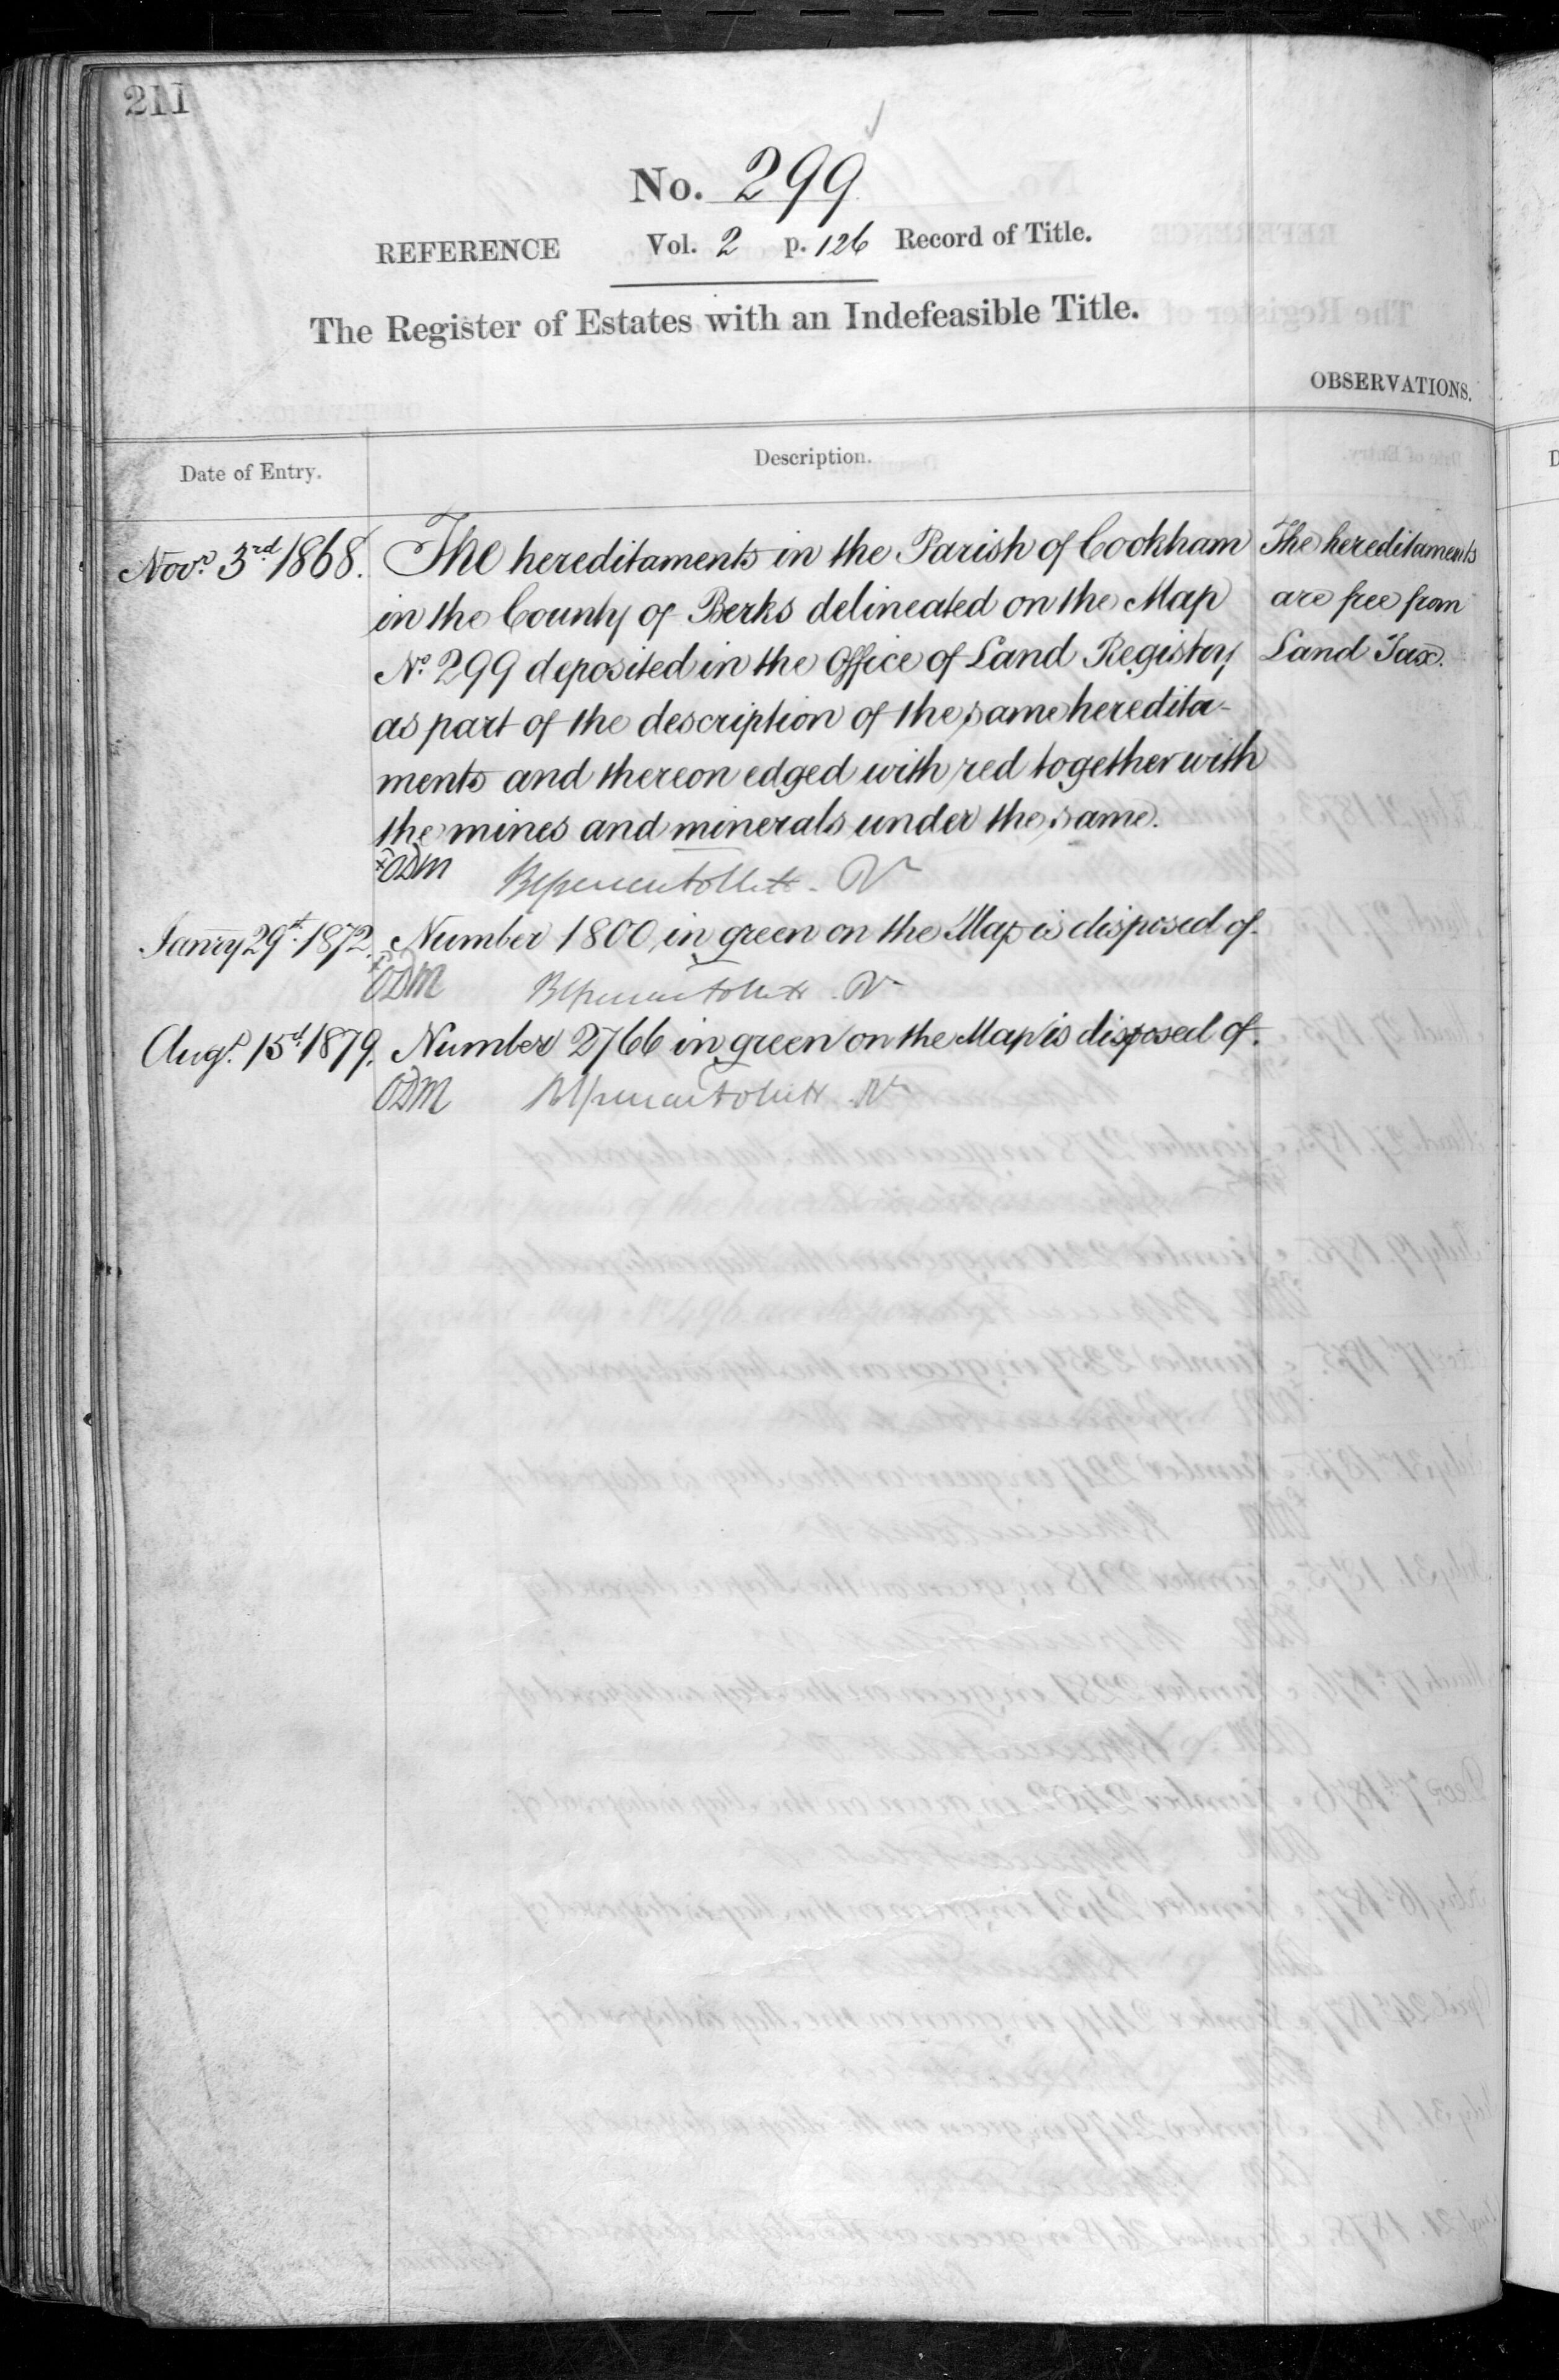 211
No. 299
REFERENCE Vol. 2 p. 126 Record of Title.
The Register of Estates with an Indefeasible Title.
OBSERVATIONS.
Date of Entry.
Description.
Novr. 3rd 1868.
The hereditaments in the Parish of Cookham
in the County of Berks delineated on the Map
No. 299 deposited in the Office of Land Registry
as part of the description of the same heredita-
ments and thereon edged with red together with
the mines and minerals under the same.
The hereditaments
are free from
Land Tax.
ODM
Janry 29th 1872.
Number 1800 in green on the Map is disposed of.
ODM
Augt. 15th 1879.
Number 2766 in green on the Map is disposed of.
ODM